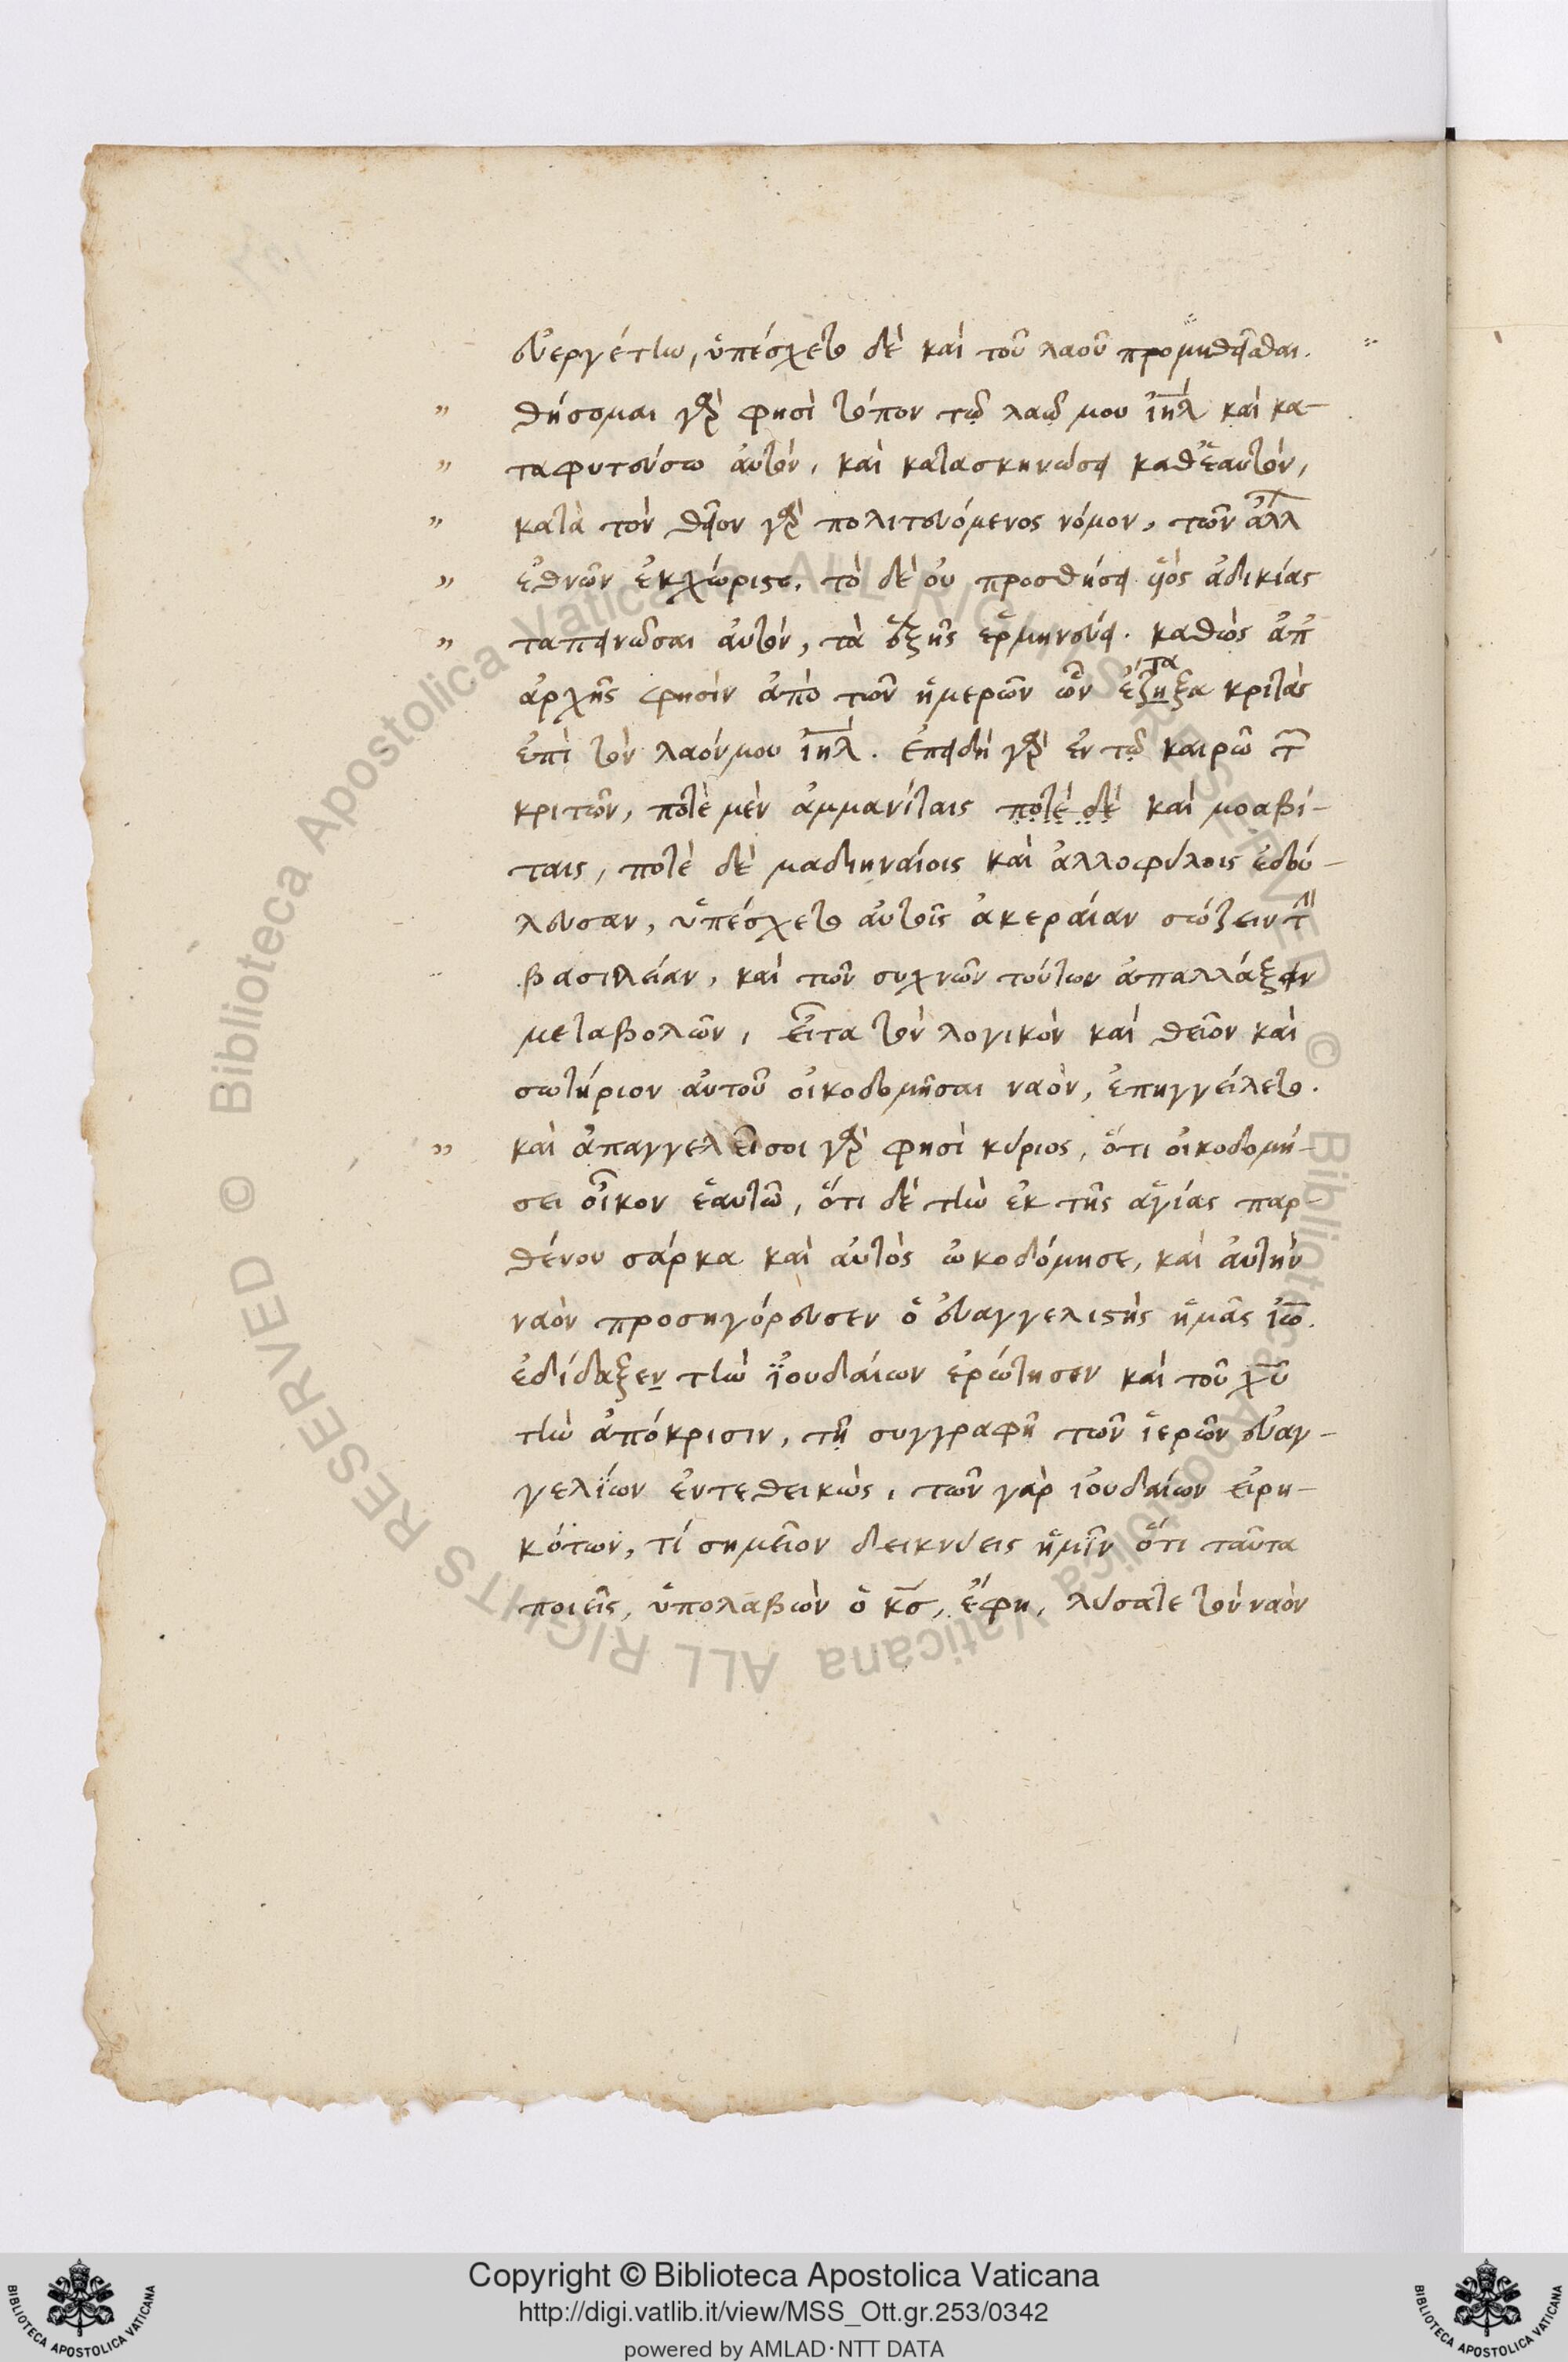 εὐεργέτην, ὑπέσχετο δὲ καὶ τοῦ λαοῦ προμηθεῖσθαι.
" θήσομαι γὰρ φησὶ τόπον τῷ λαῷ μου ἰηλ καὶ κα-
" ταφυτεύσω αὐτὸν, καὶ κατασκηνώσει καθ' ἑαυτὸν,
" κατὰ τὸν θεῖον γὰρ πολιτευόμενος νόμον, τῶν ἀλλ
" ἐθνῶν ἐκχώριστο. τὸ δὲ οὐ προσθήσει υἱὸς ἀδικίας
" ταπεινῶσαι αὐτὸν, τὰ ἑξῆς ἑρμηνεύει. καθὼς ἀπ'
ἀρχῆς φησὶν ἀπὸ τῶν ἡμερῶν ὧν ἔταξα κριτὰς
ἐπὶ τὸν λαόν μου ἰηλ. ἐπειδὴ γὰρ ἐν τῷ καιρῶ τ
κριτῶν, ποτὲ μὲν ἀμμανίταις ποτὲ δὲ καὶ μοαβί-
ταις, ποτὲ δὲ μαδιηναίοις καὶ ἀλλοφύλοις ἐδού-
λευσαν, ὑπέσχετο αὐτοῖς ἀκεραίαν σώζειν τ
βασιλείαν, καὶ τῶν συχνῶν τούτων ἀπαλλάξειν
μεταβολῶν, εἶτα τὸν λογικὸν καὶ θεῖον καὶ
σωτήριον αὐτοῦ οἰκοδομῆσαι ναὸν, ἐπηγγείλετο.
" καὶ ἀπαγγελεῖ σοι γὰρ φησὶ κύριος, ὅτι οἰκοδομή-
σει οἶκον ἑαυτῶ, ὅτι δὲ τὴν ἐκ τῆς ἁγίας παρ-
θένου σάρκα καὶ αὐτὸς ὠκοδόμησε, καὶ αὐτὴν
ναὸν προσηγόρευσεν ὁ εὐαγγελιστὴς ἡμᾶς ἰω.
ἐδίδαξεν τὴν ἰουδαίων ἐρώτησεν καὶ τοῦ χυ
τὴν ἀπόκρισιν, τῇ συγγραφῇ τῶν ἱερῶν εὐαγ-
γελίων ἐντεθεικὼς, τῶν γὰρ ἰουδαίων εἰρη-
κότων, τί σημεῖον δεικνύεις ἡμῖν ὅτι ταῦτα
ποιεῖς, ὑπολαβὼν ὁ κσ, ἔφη, λύσατε τὸν ναὸν
Copyright © Biblioteca Apostolica Vaticana
http://digi.vatlib.it/view/MSS_Ott.gr.253/0342
powered by AMLAD·NTT DATA
BIBLIOTECA APOSTOLICA VATICANA
BIBLIOTECA APOSTOLICA VATICANA
© Biblioteca Apostolica Vaticana ALL RIGHTS RESERVED
© Biblioteca Apostolica Vaticana ALL RIGHTS RESERVED